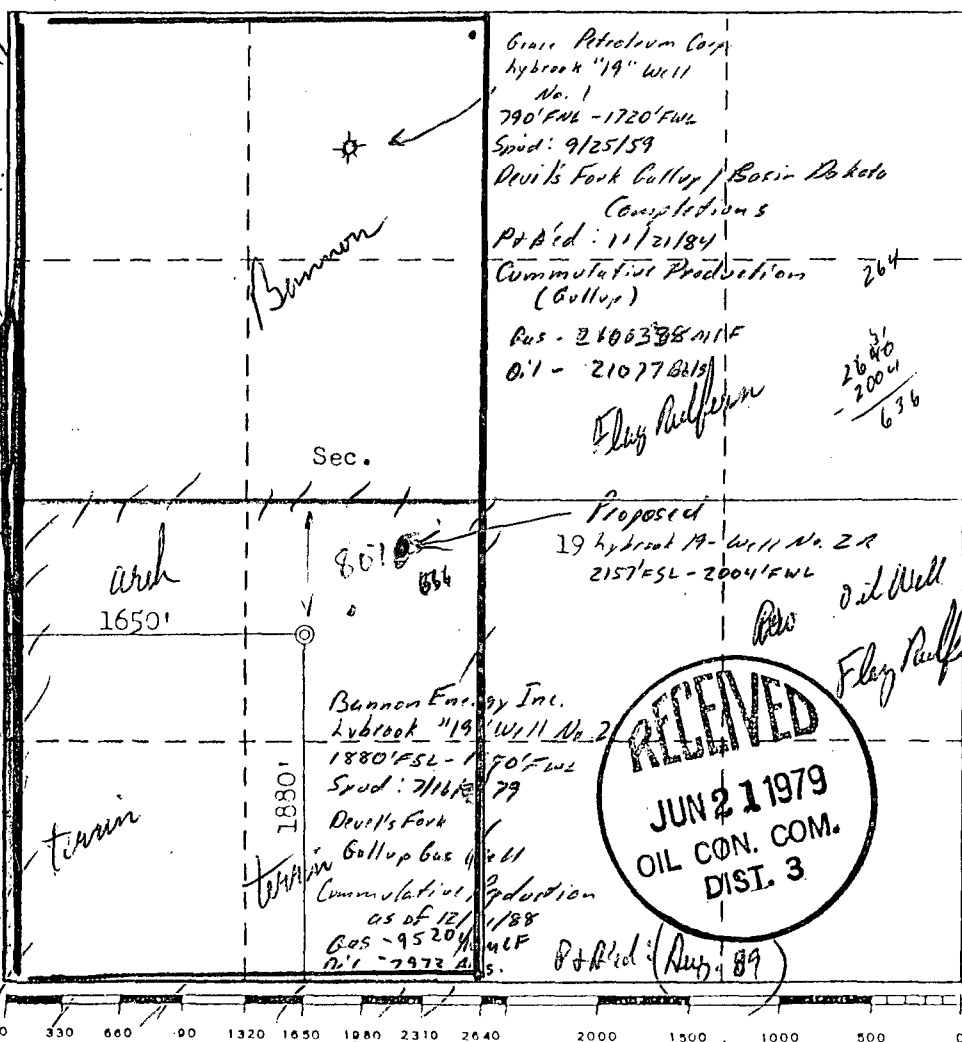 Grace Petroleum Corp
Lybrook "19" Well
No. 1
790'FNL - 1720'FWL
Spud: 9/25/59
Devil's Fork Gallup / Basin Dakota
Completions
P&A'ed: 11/21/84
Cummulative Production
(Gallup)
Gas -
Oil - 21077 Bbls
264
2640
- 2004
636
Bannon
Sec.
Proposed
19 Lybrook 19 - Well No. 2R
2157'FSL - 2004'FWL
Oil Well
801
636
arch
1650'
1880'
Bannon Energy Inc.
Lybrook "19" Well No. 2
1880'FSL -
Spud:
Devel's Fork
Gallup Gas Well
Commulative Production
as of
Gas -
Oil - 7972
P&A'ed: (Aug. 89)
terrin
terrin
RECEIVED
JUN 21 1979
OIL CON. COM.
DIST. 3
0 330 660 90 1320 1650 1980 2310 2640 2000 1500 1000 500 0